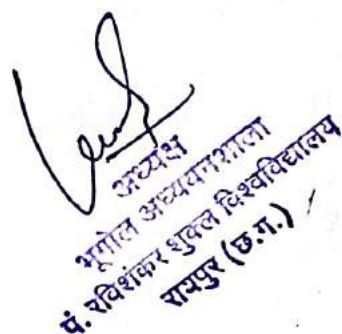 अध्यक्ष
भूगोल अध्ययनशाला
पं. रविशंकर शुक्ल विश्वविद्यालय
रायपुर (छ.ग.)